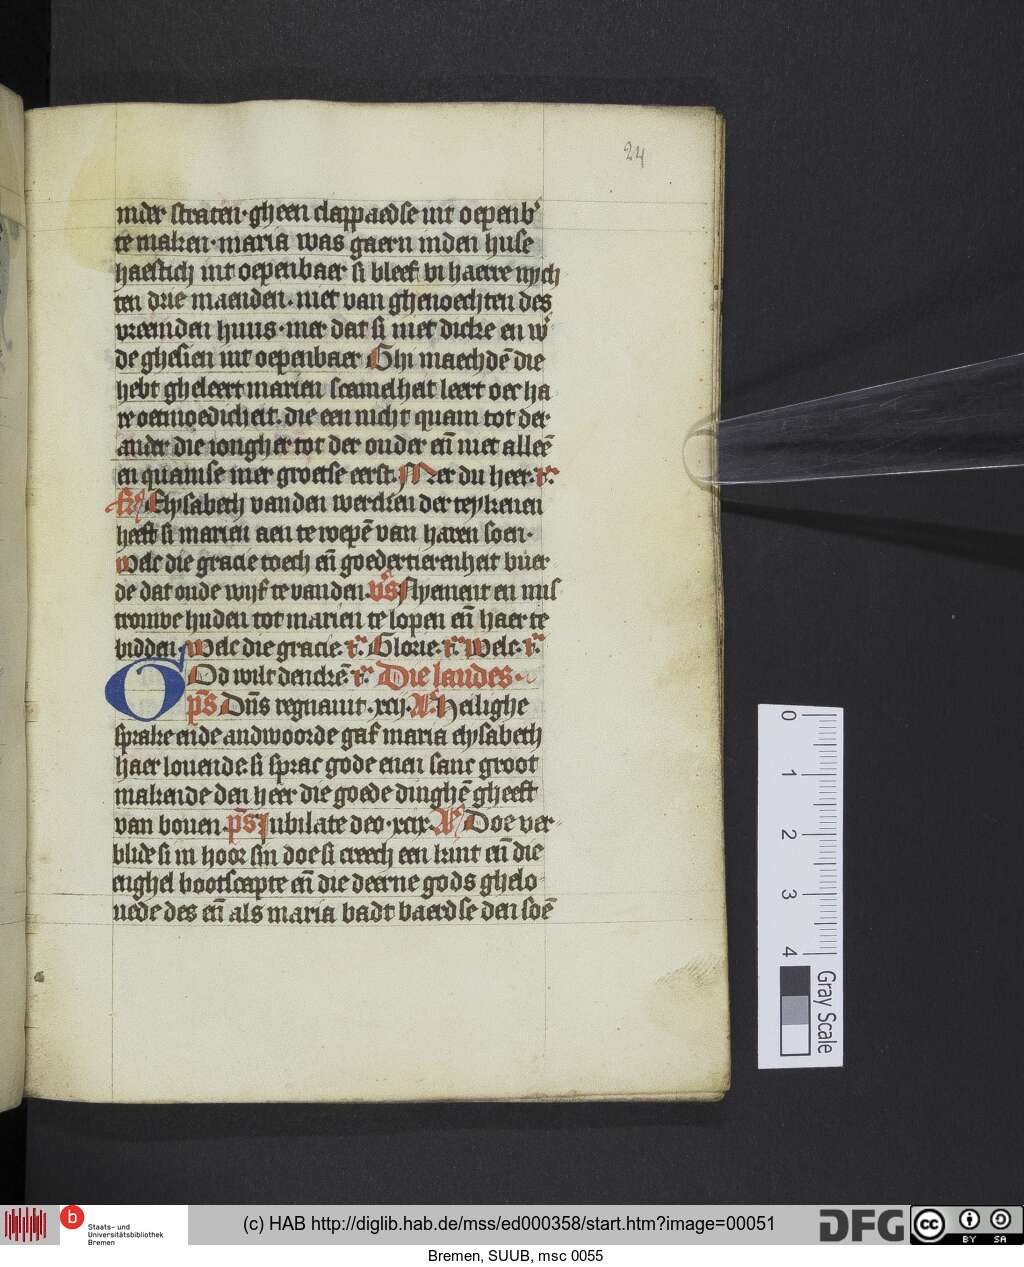 24
inder straten · gheen clappaedse int oepenb'
te maken · maria was gaern inden huse
haestich int oepenbaer si bleef bi haerre nych
ten drie maenden · niet van ghenoechten des
vreemden huus · mer dat si niet dicke en w'
de ghesien int oepenbaer Ghi maechdē die
hebt gheleert marien scamelhait leert oec ha
re oetmoedicheit. die een nicht quam tot der
ander die iongher tot der ouder eñ niet alleē
en quamse mer groetse eerst. Mer du heer.
Elysabeth vanden wercken der teykenen
heeft si marien aen te roepē van haren soen ·
Welc die gracie toech eñ goedertierenheit vuer
de dat oude wijf te vanden. v̄s Nyement en mis
trouwe huden tot marien te lopen eñ haer te
bidden. Welc die gracie. Glorie. Welc.
God wilt denckē. Die laudes ·
p̄s Dn̄s regnauit · xcij · Heilighe
sprake ende andwoorde gaf maria elysabeth
haer louende. si sprac gode enen sanc groot
makende den heer die goede dinghē gheeft
van bouen. p̄s Jubilate deo · xcix. Doe ver
blide si in hoor sin doe si creech een kint eñ die
enghel bootscapte eñ die deerne gods ghelo
uede des eñ als maria badt baerdse den soē
0 1 2 3 4
Gray Scale
b
Staats- und
Universitätsbibliothek
Bremen
(c) HAB http://diglib.hab.de/mss/ed000358/start.htm?image=00051
DFG
cc BY SA
Bremen, SUUB, msc 0055